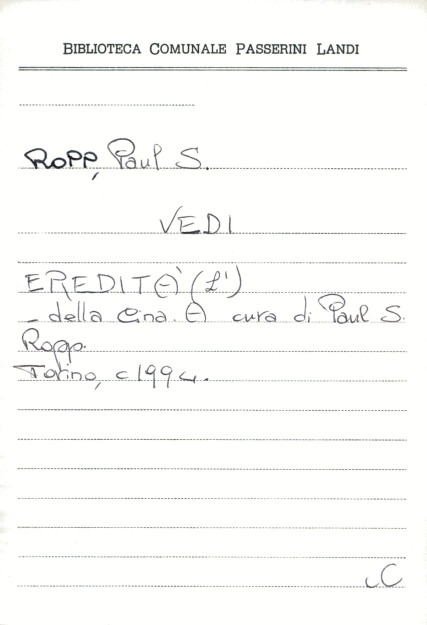 BIBLIOTECA COMUNALE PASSERINI LANDI
ROPP, Paul S.
VEDI
EREDITÀ (L')
- della Cina. A cura di Paul S.
Ropp.
Torino, c1994.